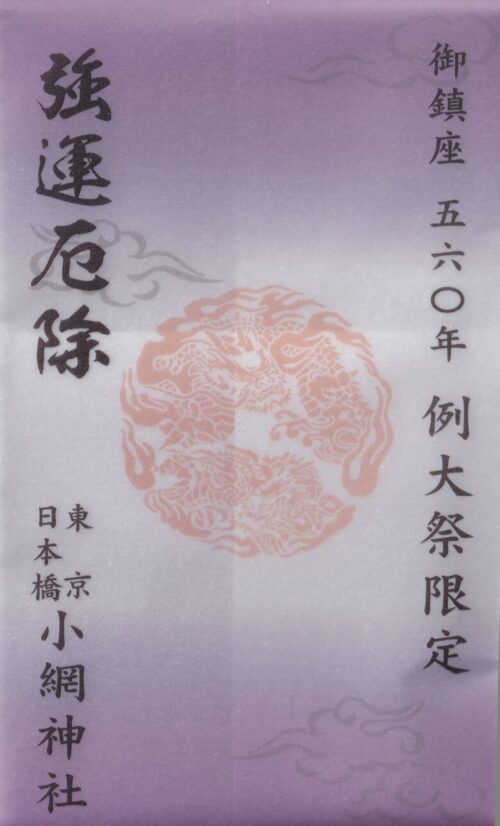 御鎮座 五六〇年 例大祭限定
強運厄除
東京
日本橋
小網神社